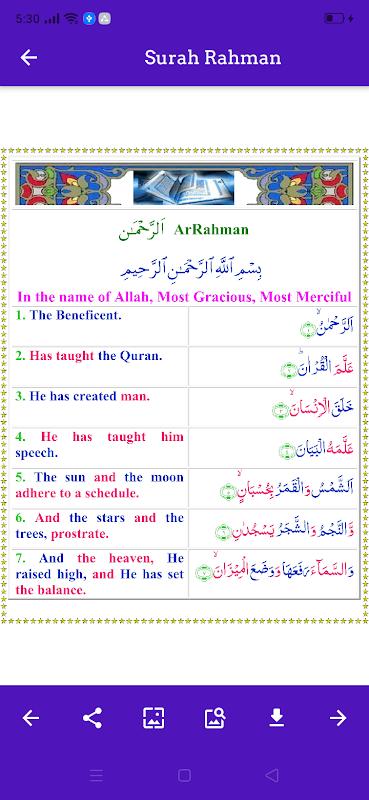 5:30
Surah Rahman
اَلرَّحْمٰن ArRahman
بِسْمِ اللَّهِ الرَّحْمٰنِ الرَّحِيمِ
In the name of Allah, Most Gracious, Most Merciful
1. The Beneficent.
اَلرَّحْمٰنُۙ ﴿۱﴾
2. Has taught the Quran.
عَلَّمَ الْقُرْاٰنَؕ ﴿۲﴾
3. He has created man.
خَلَقَ الْاِنْسَانَۙ ﴿۳﴾
4. He has taught him
speech.
عَلَّمَهُ الْبَيَانَ ﴿۴﴾
5. The sun and the moon
adhere to a schedule.
اَلشَّمْسُ وَالْقَمَرُ بِحُسْبَانٍۙ ﴿۵﴾
6. And the stars and the
trees, prostrate.
وَّالنَّجْمُ وَالشَّجَرُ يَسْجُدٰنِ ﴿۶﴾
7. And the heaven, He
raised high, and He has set
the balance.
وَالسَّمَآءَ رَفَعَهَا وَوَضَعَ الْمِيْزَانَۙ ﴿۷﴾